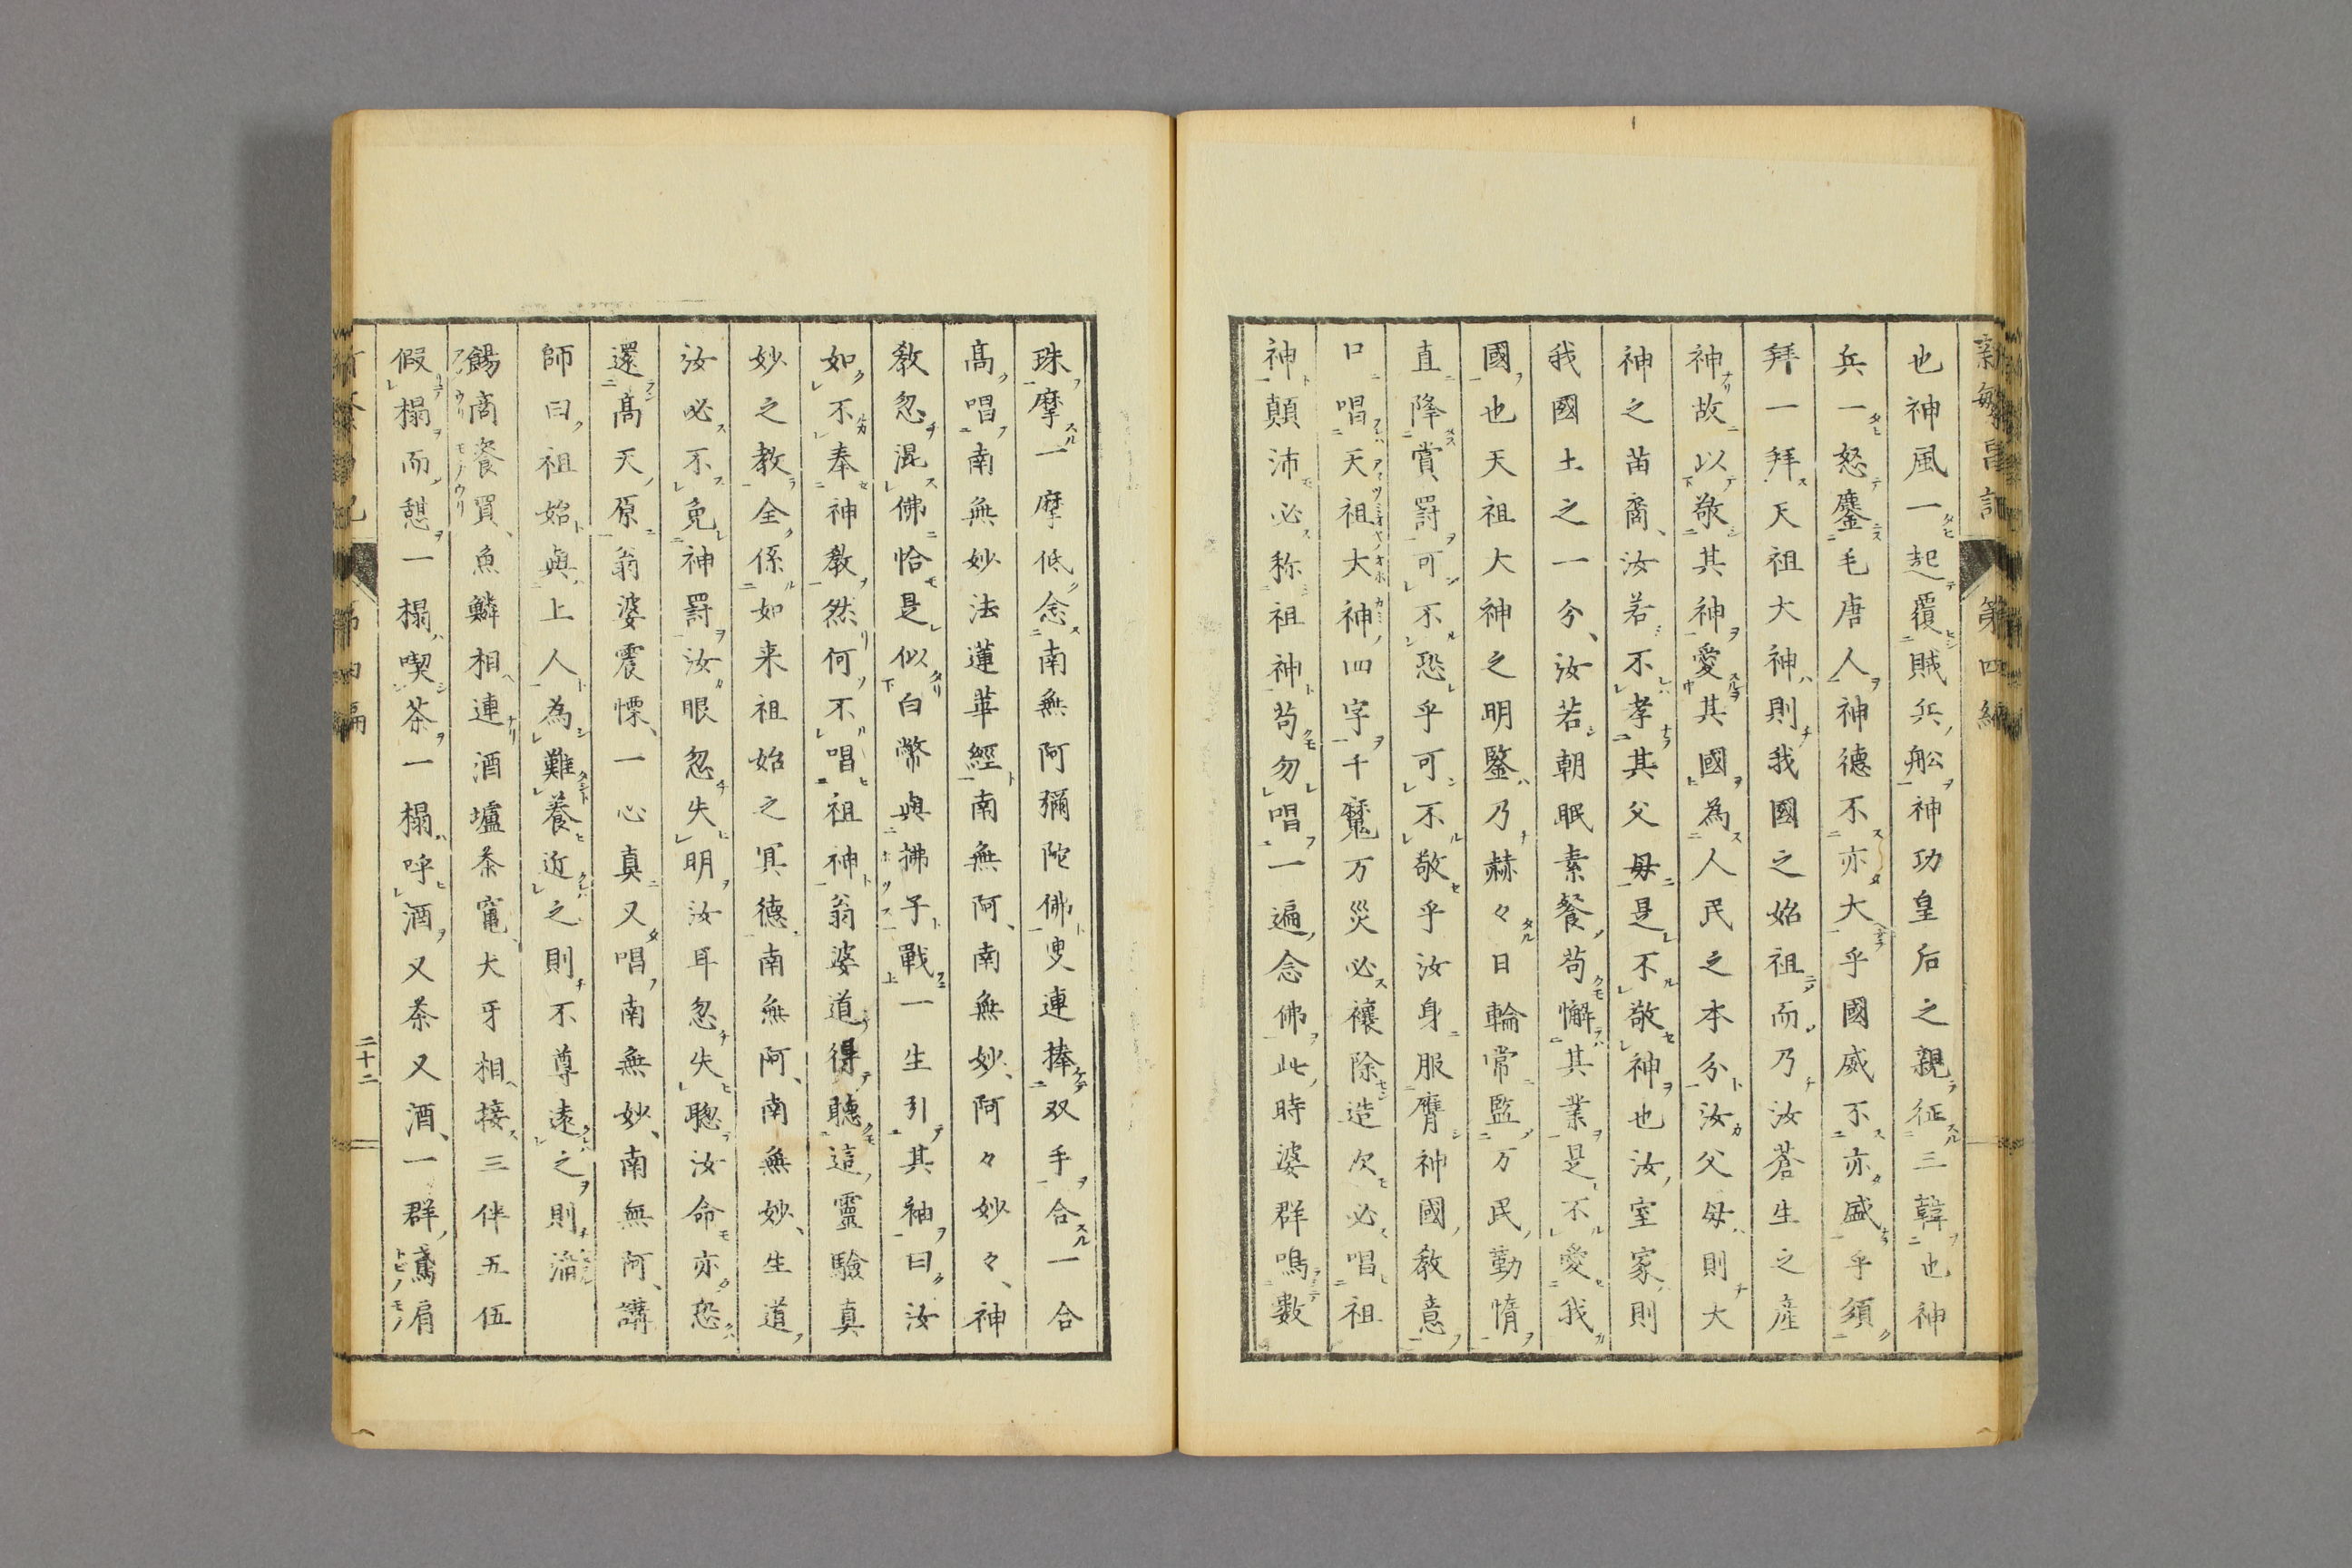 第四編
也神風一起覆賊兵舩神功皇后之親征三韓也神
兵一怒鏖毛唐人神德不亦大乎國威不亦盛乎須
拜一拜天祖大神則我國之始祖而乃汝蒼生之產
神故以敬其神愛其國為人民之本分汝父母則大
神之苗裔、汝若不孝其父母是不敬神也汝室家則
我國土之一分、汝若朝眠素餐苟懈其業是不愛我
國也天祖大神之明鑒乃赫々日輪常監万民勤惰
直降賞罰可不恐乎可不敬乎汝身服膺神國教意
口唱天祖大神四字千魔万災必禳除造次必唱祖
神顛沛必称祖神苟勿唱一遍念佛此時婆群鳴數
珠摩一摩低念南無阿彌陀佛叟連捧双手合一合
高唱南無妙法蓮華經南無阿、南無妙、阿々妙々、神
教忽混佛恰是似白幣與拂子戰一生引其袖曰汝
如不奉神教然何不唱祖神翁婆道得聽這靈驗真
妙之教全係如来祖始之冥德南無阿、南無妙、生道
汝必不免神罸汝眼忽失明汝耳忽失聰汝命亦恐
還高天原翁婆震慄、一心真又唱南無妙、南無阿、講
師曰祖始與上人為難養近之則不尊遠之則瀆
餳商餈買、魚鱗相連酒壚茶竃、犬牙相接三伴五伍
假榻而憩一榻喫茶一榻呼酒又茶又酒、一群鳶肩
二十二